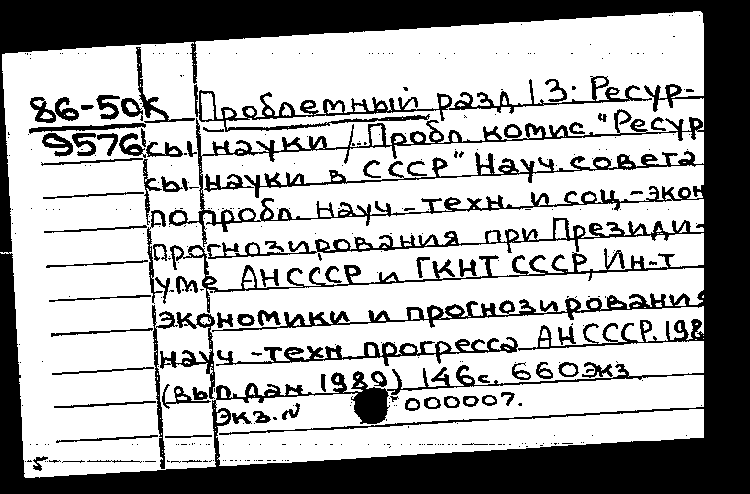 86-50К Проблемный разд. 1.3: Ресур-
9576 сы науки / Пробл. комис. "Ресур
сы науки в СССР" Науч. совета
по пробл. науч.-техн. и соц.-экон
прогнозирования при Президи-
уме АН СССР и ГКНТ СССР, Ин-т
экономики и прогнозирования
науч.-техн. прогресса АН СССР. 198
(вып. дан. 1989) 146 с. 660 экз
Экз. N 000007.
5